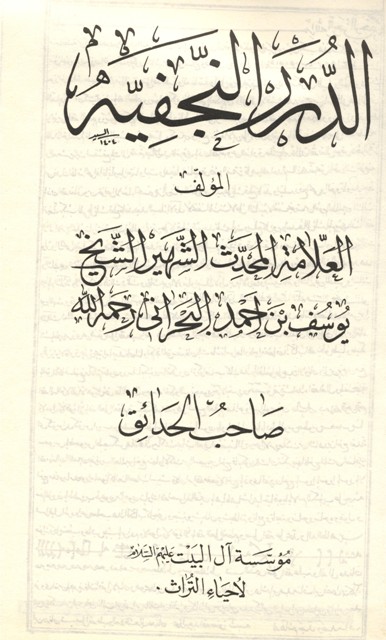 الدُّرَرُ النَّجَفِيَّه
السيد
١٤٠٤
المؤلف
العلّامة المحدّث الشّهير الشّيخ
يُوسُف بن احمد البَحراني رحمه الله
صَاحبُ الحَدائق
مؤسّسة آل البيت عليهم السّلام
لأحياء التراث .